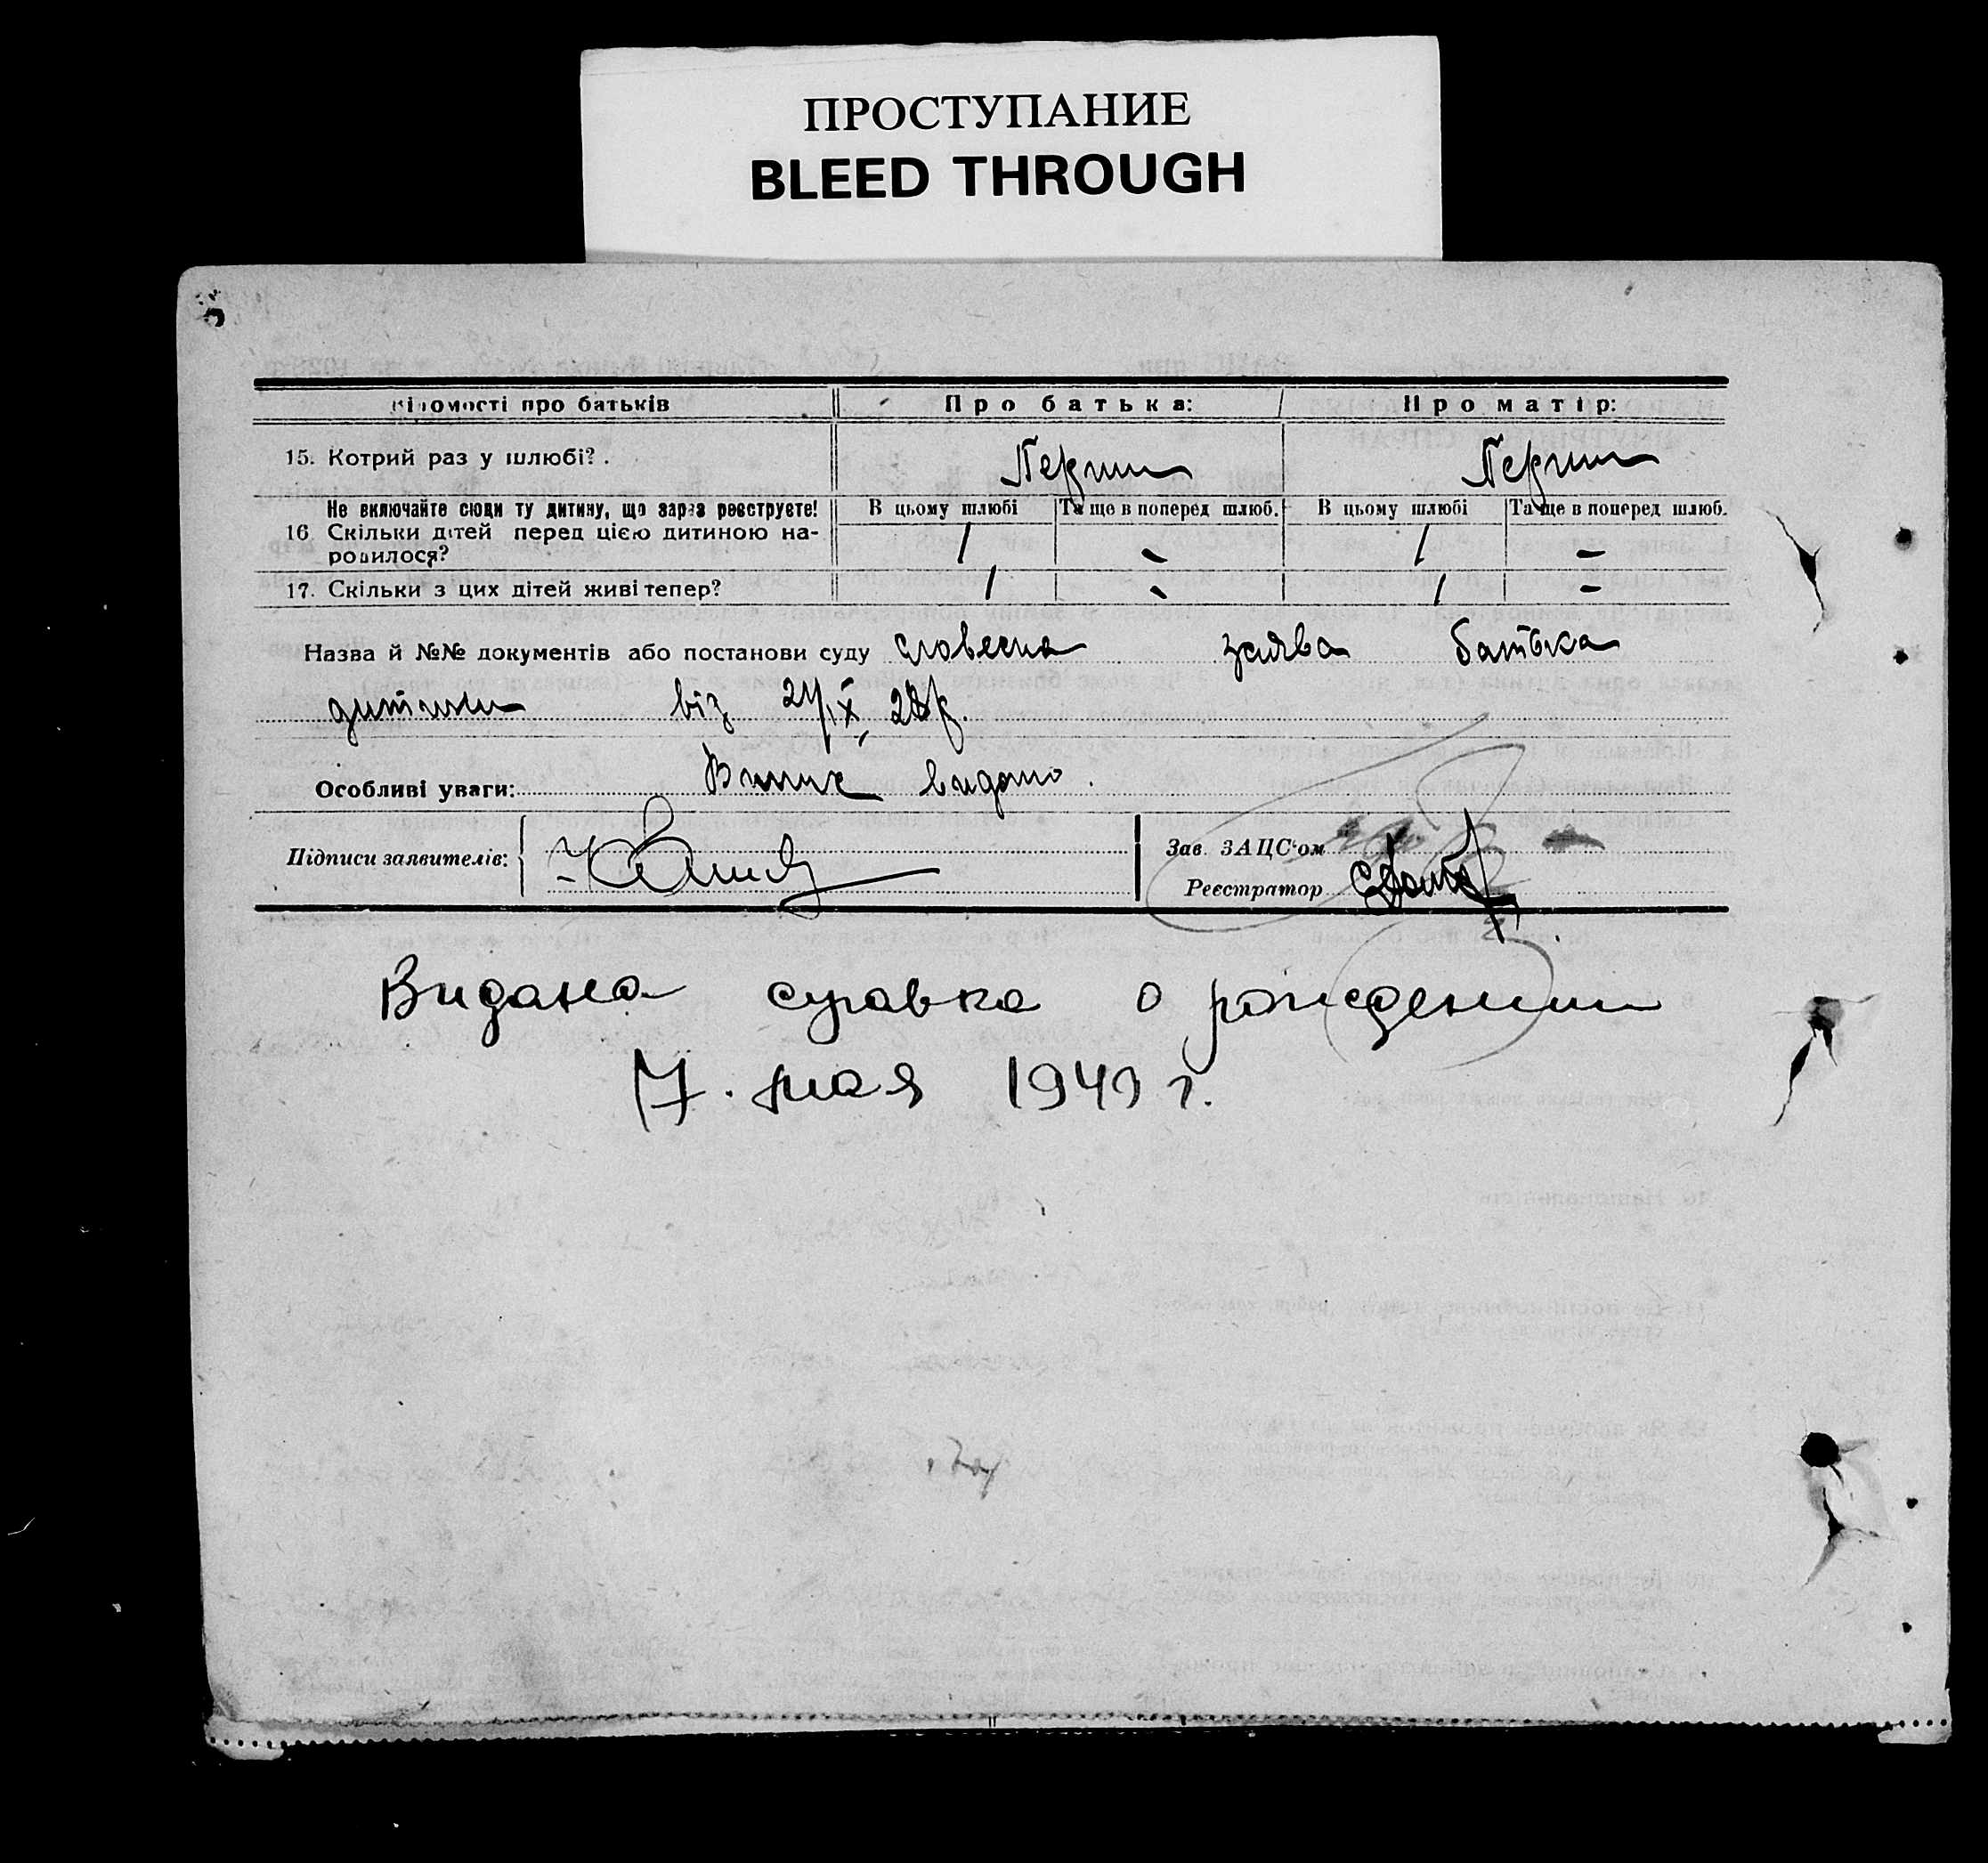 ПРОСТУПАНИЕ
BLEED THROUGH
відомості про батьків Про батька: Про матір:
15. Котрий раз у шлюбі? . Перший Перший
Не включайте сюди ту дитину, що зараз реєструєте! В цьому шлюбі Та ще в поперед шлюб. В цьому шлюбі Та ще в поперед шлюб.
16 Скільки дітей перед цією дитиною на- 1 - 1 -
родилося?
17. Скільки з цих дітей живі тепер? 1 - 1 -
Назва й №№ документів або постанови суду словесна заява батька
дитини від 24/IX 28р.
Особливі уваги: Витяг видано.
Підписи заявителів: Зав. ЗАЦС'ом
Реєстратор
Видана справка о рождении
7. мая 1949 г.